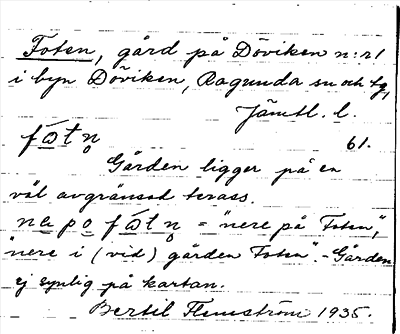 Foten, gård på Döviken n:r 1
i byn Döviken, Ragunda sn och tg,
Jämtl. l.
fω̄tn̥ 61.
Gården ligger på en
väl avgränsad terass.
ne po fω̄tn̥ = "nere på Foten",
"nere i (vid) gården Foten". - Gården
ej synlig på kartan.
Bertil Flemström 1935.